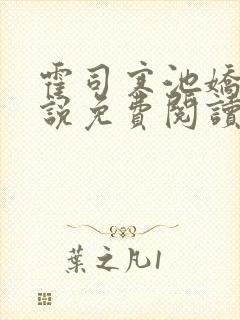 霍司寒池嬌
說免費閱讀
葉之凡1